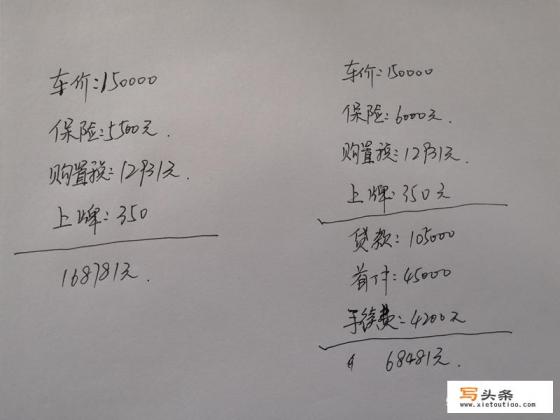 车价:150000
保险:5500元.
购置税:12931元.
上牌:350
168781元.
车价:150000
保险:6000元.
购置税:12931元.
上牌:350元
贷款:105000
首付:45000
手续费:4200元
68481元.
写头条
www.xietoutiao.com